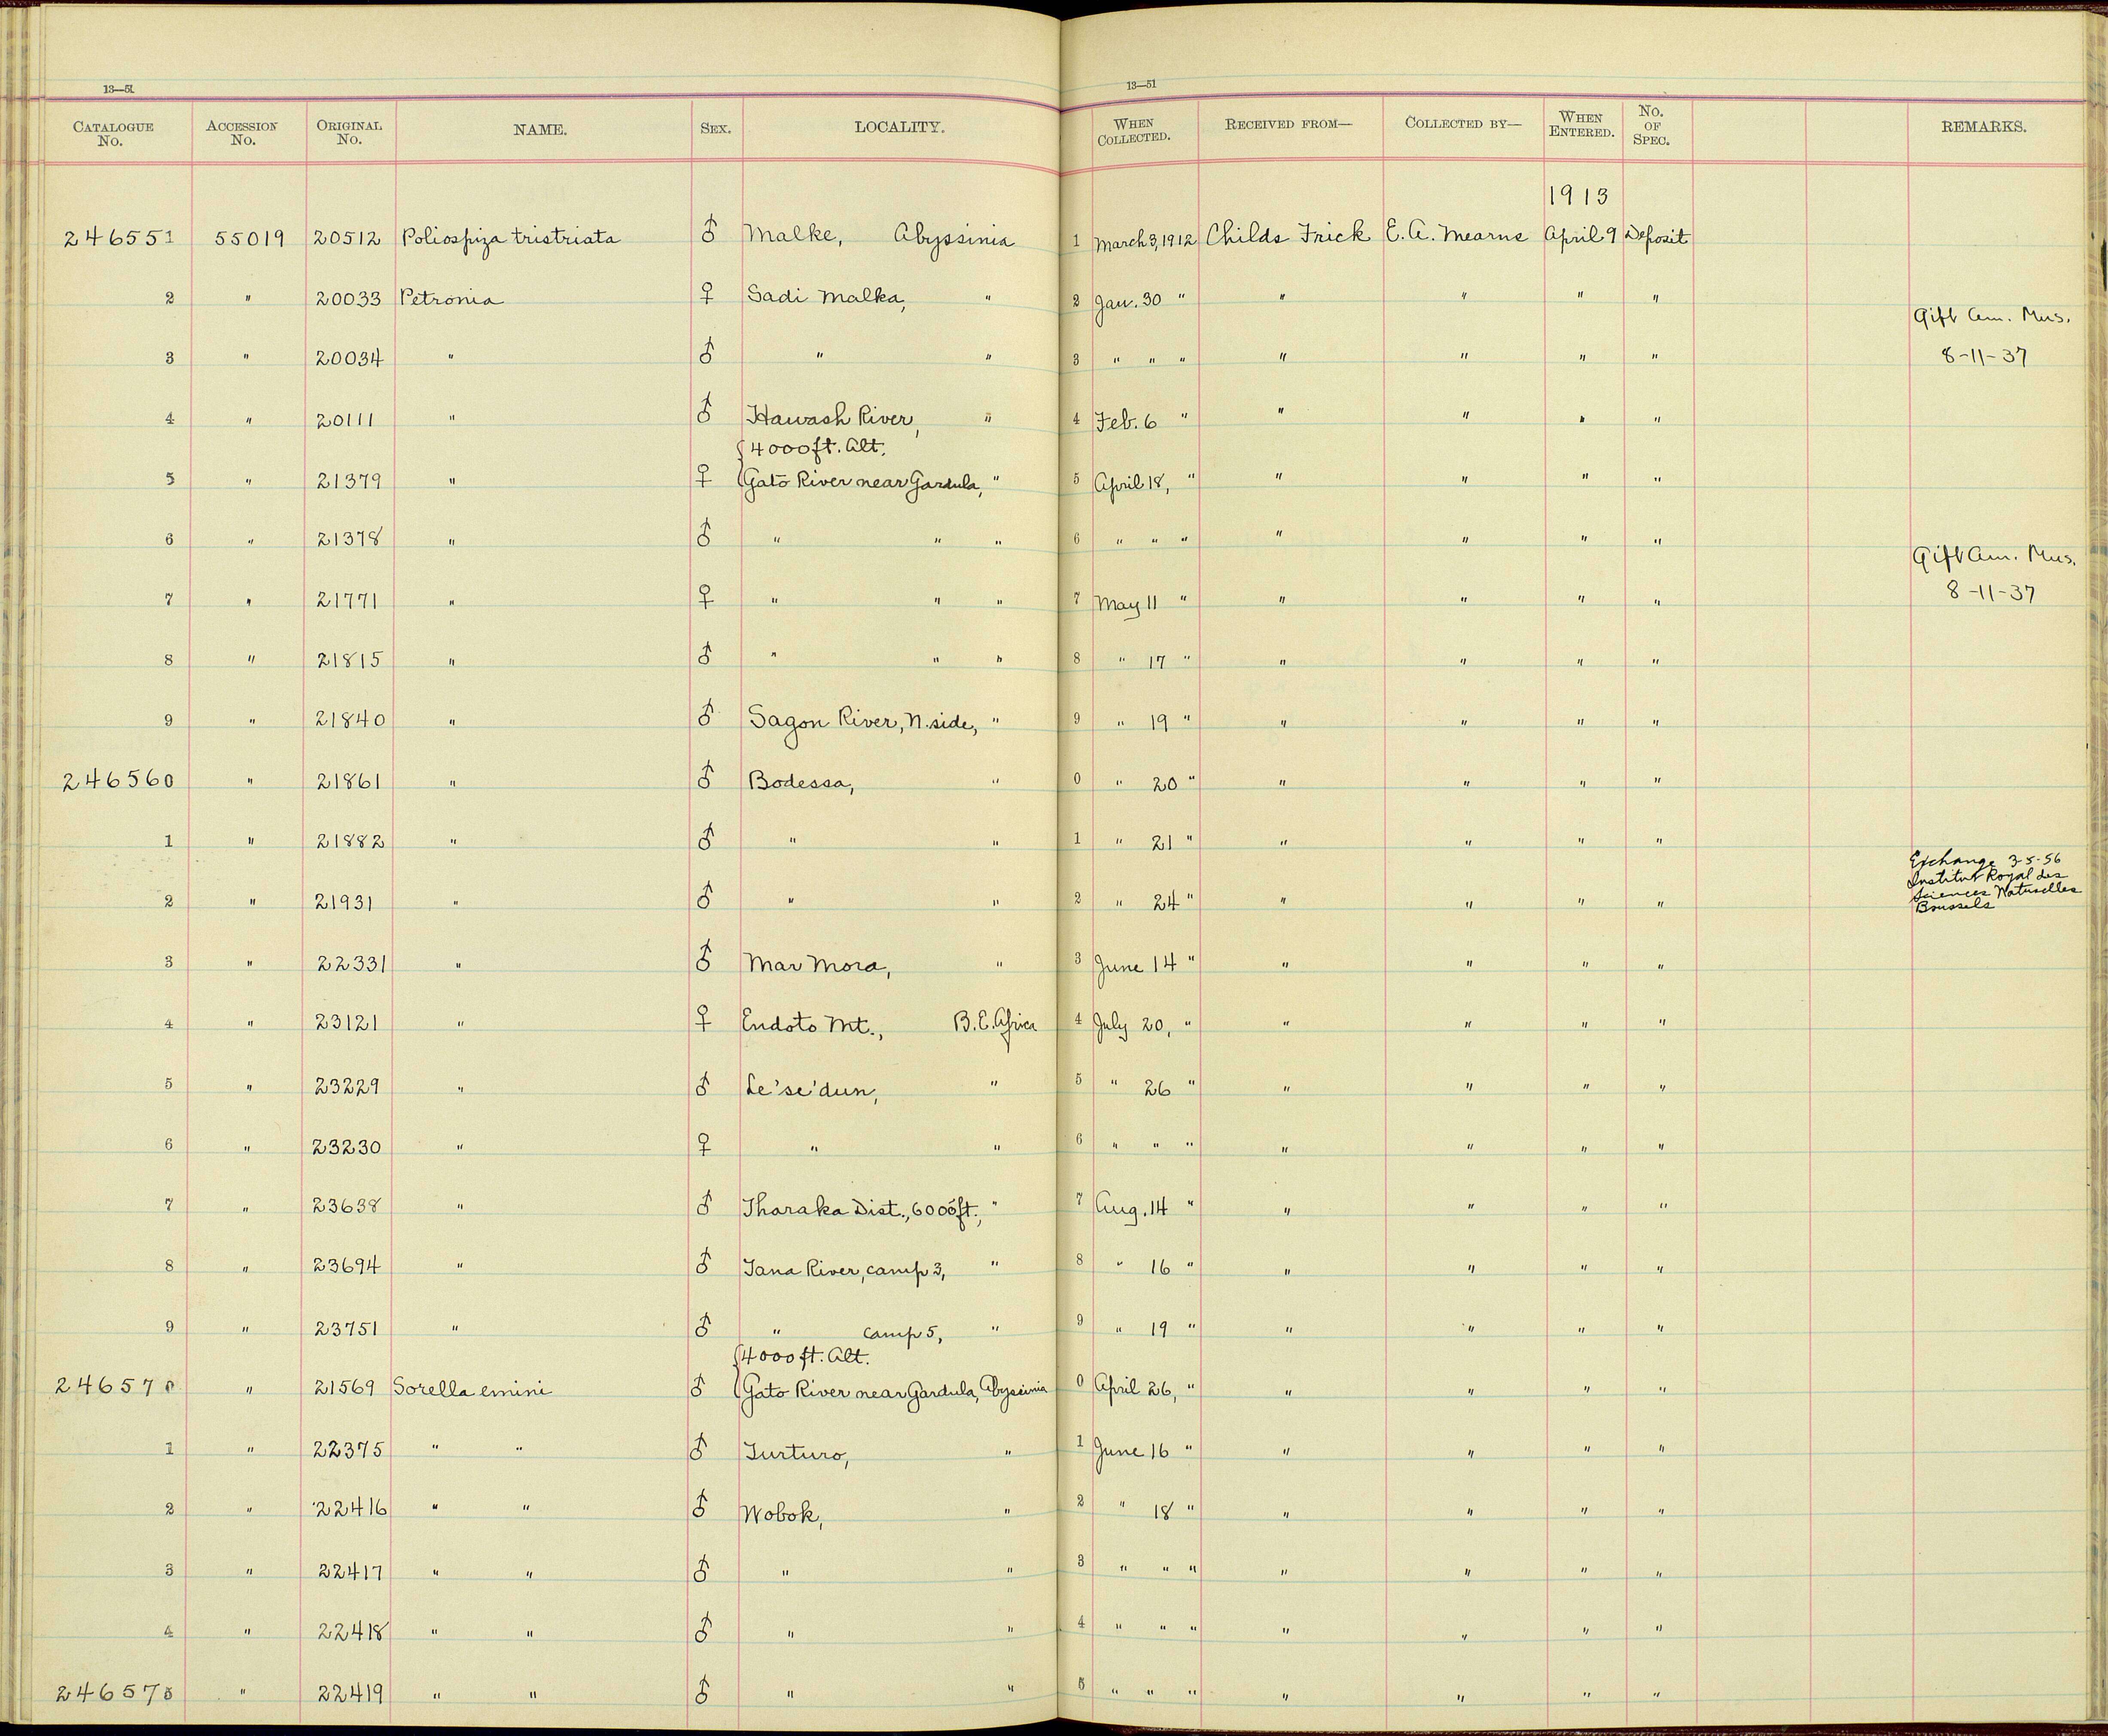 13—51 13—51
CATALOGUE No. ACCESSION No. ORIGINAL No. NAME. SEX. LOCALITY. WHEN COLLECTED. RECEIVED FROM— COLLECTED BY— WHEN ENTERED. No. OF SPEC. REMARKS.
1913
246551 55019 20512 Poliospiza tristriata ♂ Malke, Abyssinia 1 March 3, 1912 Childs Frick E. A. Mearns April 9 Deposit
2 " 20033 Petronia ♀ Sadi Malka, " 2 Jan. 30 " " " " "
Gift Am. Mus.
3 " 20034 " ♂ " " 3 " " " " " " " 8-11-37
4 " 20111 " ♂ Hawash River, " 4 Feb. 6 " " " " "
4000 ft. Alt.
5 " 21379 " ♀ Gato River near Gardula, " 5 April 18, " " " " "
6 " 21378 " ♂ " " " 6 " " " " " " "
Gift Am. Mus.
7 " 21771 " ♀ " " " 7 May 11 " " " " " 8-11-37
8 " 21815 " ♂ " " " 8 " 17 " " " " "
9 " 21840 " ♂ Sagon River, N. side, " 9 " 19 " " " " "
246560 " 21861 " ♂ Bodessa, " 0 " 20 " " " " "
1 " 21882 " ♂ " " 1 " 21 " " " " "
Exchange 3-5-56
Institut Royal des
Sciences Naturelles
2 " 21931 " ♂ " " 2 " 24 " " " " " Brussels
3 " 22331 " ♂ Mar Mora, " 3 June 14 " " " " "
4 " 23121 " ♀ Endoto Mt., B. E. Africa 4 July 20, " " " " "
5 " 23229 " ♂ Le'se'dun, " 5 " 26 " " " " "
6 " 23230 " ♀ " " 6 " " " " " " "
7 " 23638 " ♂ Tharaka Dist., 6000 ft., " 7 Aug. 14 " " " " "
8 " 23694 " ♂ Tana River, camp 3, " 8 " 16 " " " " "
9 " 23751 " ♂ " camp 5, " 9 " 19 " " " " "
4000 ft. Alt.
246570 " 21569 Sorella emini ♂ Gato River near Gardula, Abyssinia 0 April 26, " " " " "
1 " 22375 " " ♂ Turturo, " 1 June 16 " " " " "
2 " 22416 " " ♂ Wobok, " 2 " 18 " " " " "
3 " 22417 " " ♂ " " 3 " " " " " " "
4 " 22418 " " ♂ " " 4 " " " " " " "
246575 " 22419 " " ♂ " " 5 " " " " " " "